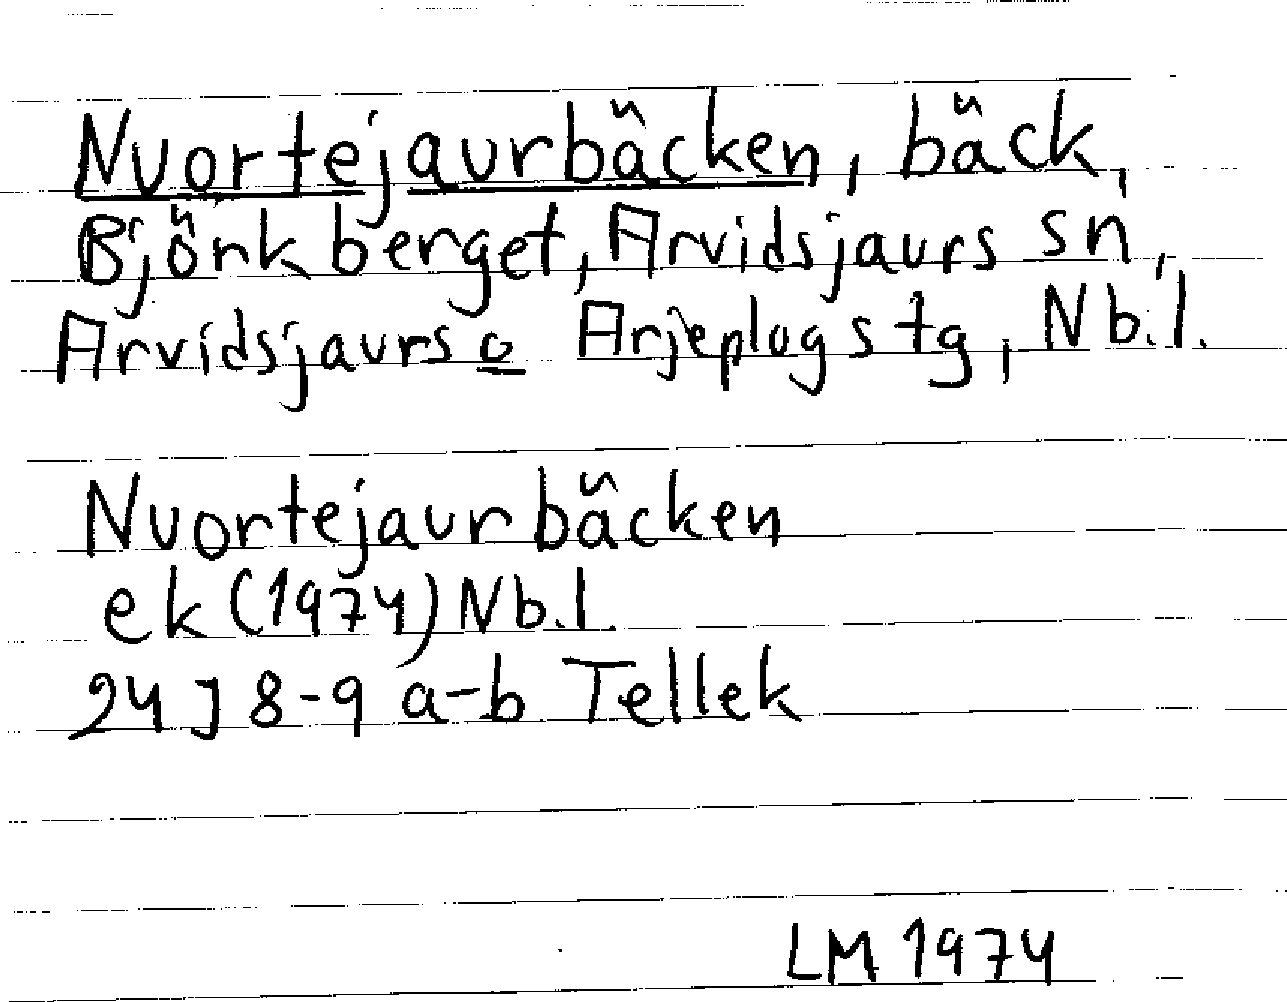 Nuortejaurbäcken, bäck,
Björkberget, Arvidsjaurs sn,
Arvidsjaurs o Arjeplogs tg, Nb.l.
Nuortejaurbäcken
ek (1974) Nb.l.
24 J 8-9 a-b Tellek
LM 1974